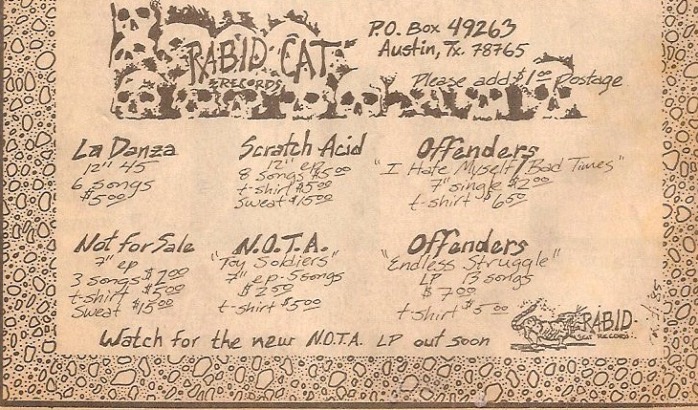 RABID CAT
RECORDS
P.O. Box 49263
Austin, Tx. 78765
Please add $1.00 Postage
La Danza
12" 45
6 songs
$5.00
Scratch Acid
12" ep
8 songs $5.00
t-shirt $5.00
sweat $15.00
Offenders
"I Hate Myself/Bad Times"
7" single $2.00
t-shirt $6.50
Not for Sale
7" ep
3 songs $2.00
t-shirt $5.00
Sweat $15.00
N.O.T.A.
"Toy Soldiers"
7" ep-5songs
$2.50
t-shirt $5.00
Offenders
"Endless Struggle"
LP 13 songs
$7.00
t-shirt $5.00
RABID
CAT RECORDS
Watch for the new N.O.T.A. LP out soon